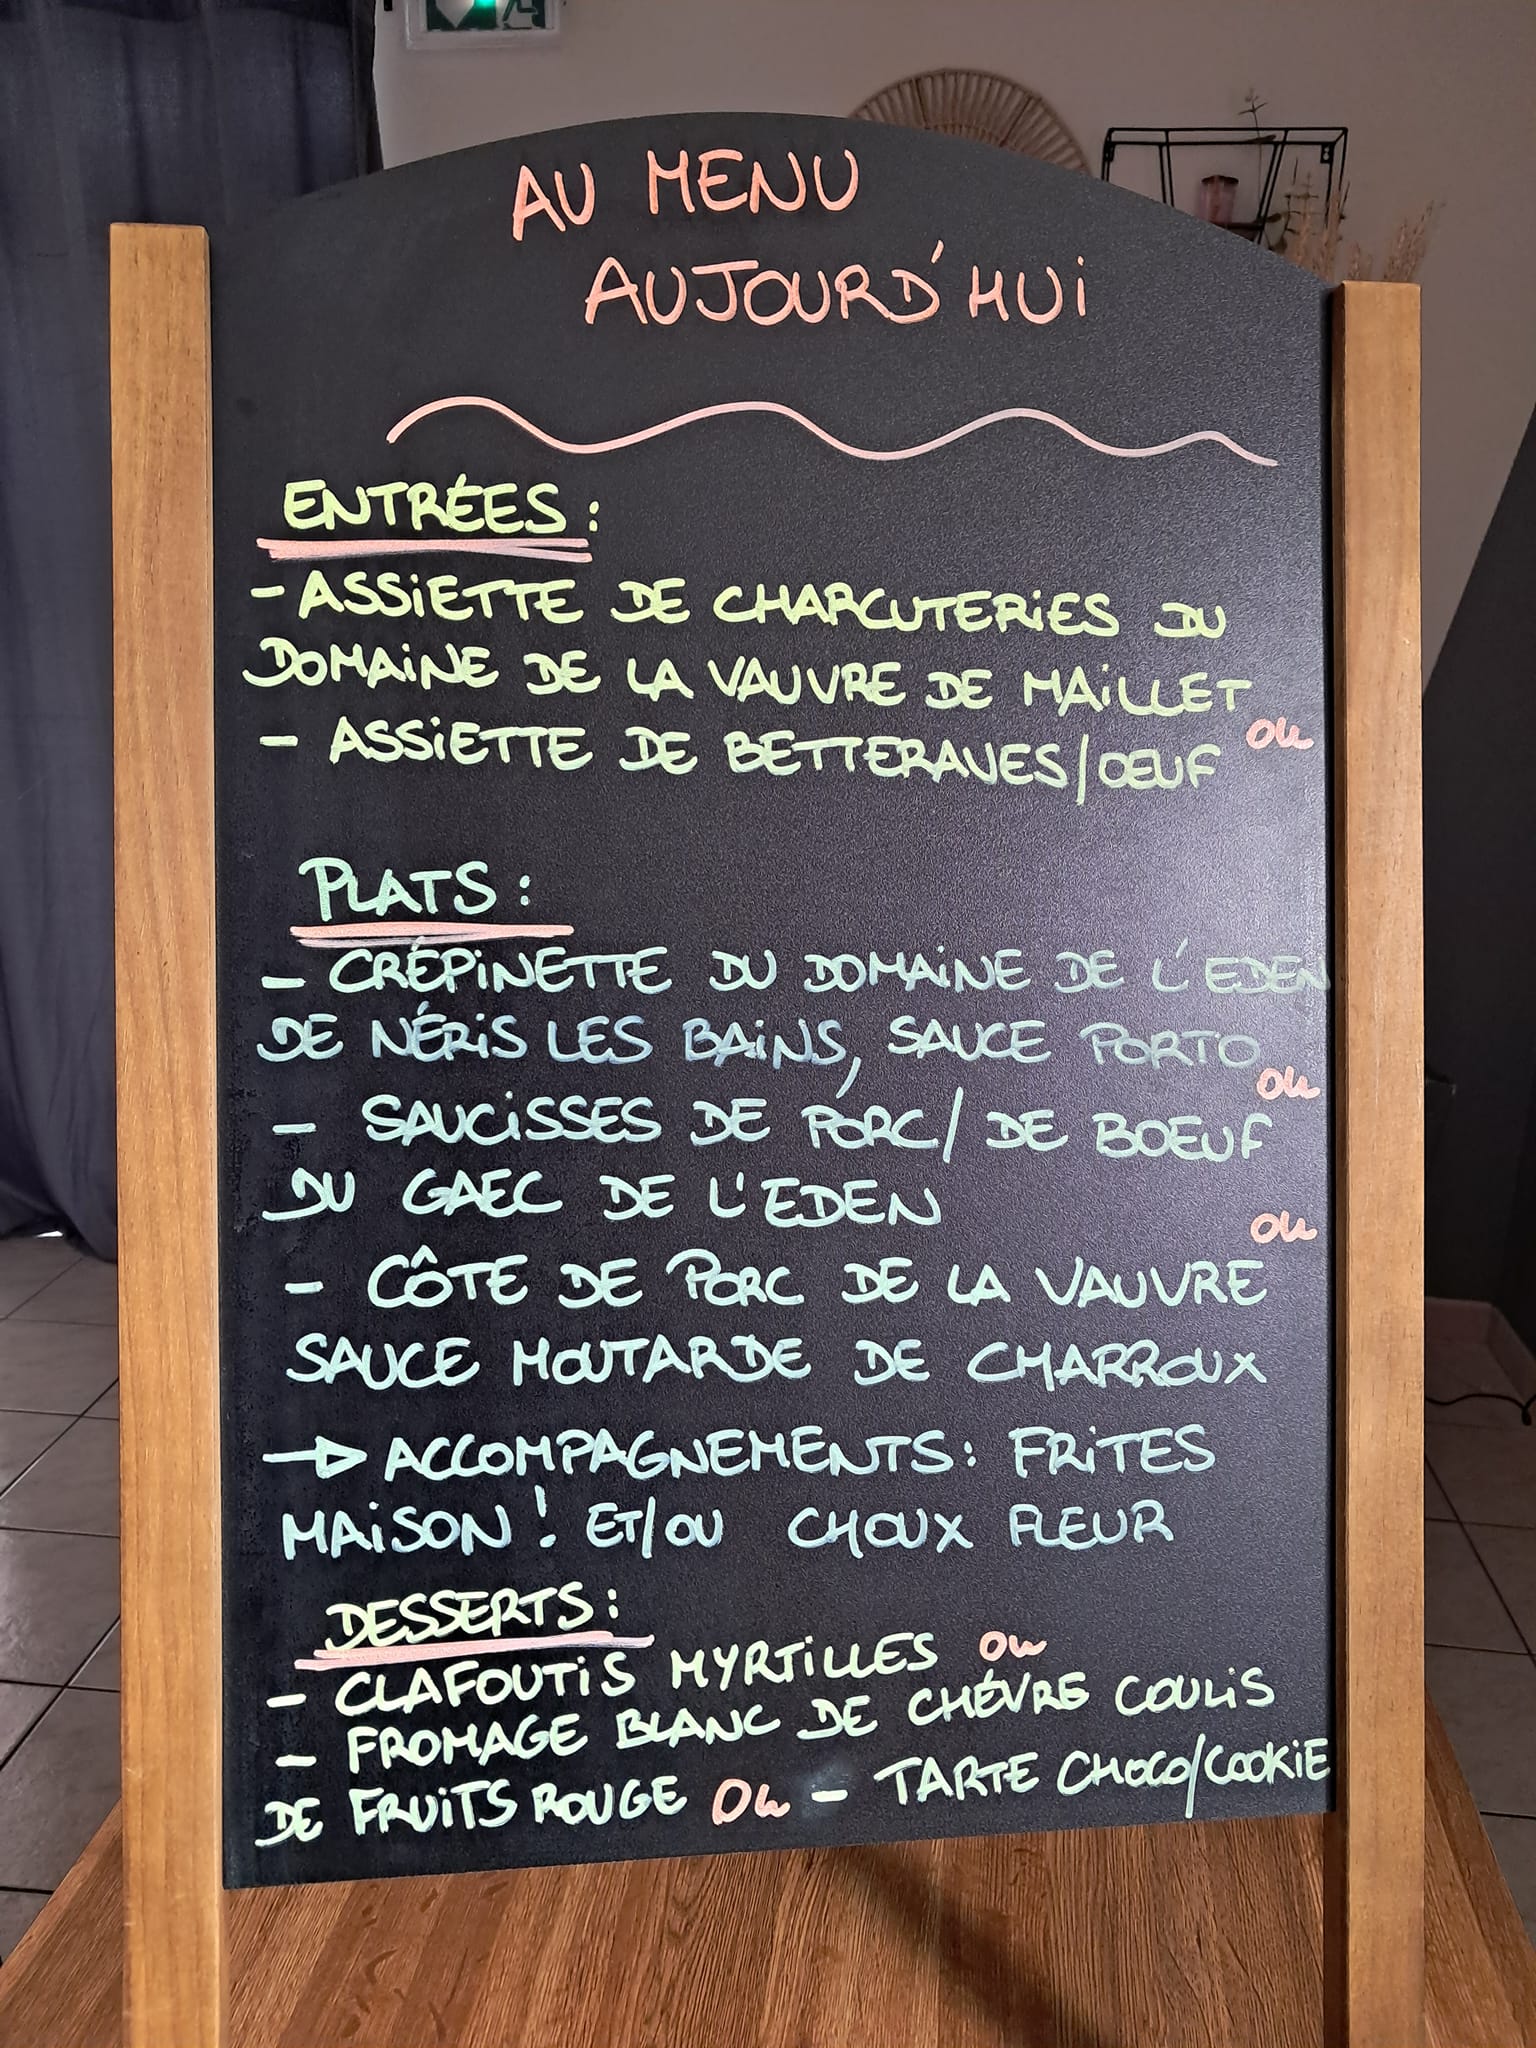 AU MENU
AUJOURD'HUi
ENTRÉES :
- ASSiETTE DE CHARCUTERiES DU
DOMAiNE DE LA VAUVRE DE MAiLLET
ou
- ASSiETTE DE BETTERAVES/OEUF
PLATS :
- CRÉPiNETTE DU DOMAiNE DE L'EDEN
DE NÉRiS LES BAiNS, SAUCE PORTO
ou
- SAUCiSSES DE PORC/ DE BOEUF
DU GAEC DE L'EDEN
ou
- CÔTE DE PORC DE LA VAUVRE
SAUCE MOUTARDE DE CHARROUX
→ ACCOMPAGNEMENTS : FRiTES
MAiSON ! ET/OU CHOUX FLEUR
DESSERTS :
- CLAFOUTiS MYRTiLLES ou
- FROMAGE BLANC DE CHÉVRE COULiS
DE FRUiTS ROUGE Ou - TARTE CHOCO/COOKiE